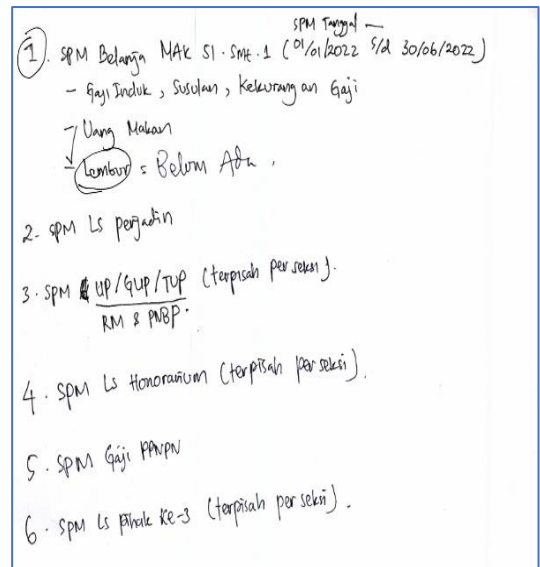 SPM Tanggal —
1. SPM Belanja MAK 51. Smt. 1 (01/01/2022 s/d 30/06/2022)
- Gaji Induk, Susulan, Kekurangan Gaji
- Uang Makan
- Lembur = Belum Ada.
2. SPM LS perjadin
3. SPM UP/GUP/TUP (terpisah per seksi).
RM & PNBP.
4. SPM Ls Honorarium (terpisah per seksi).
5. SPM Gaji PPNPN
6. SPM Ls Pihak Ke-3 (terpisah per seksi).